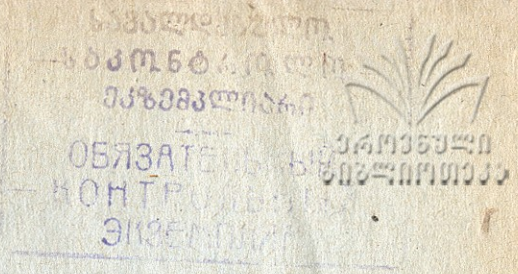 სავალდებულო
საკონტროლო
ეკზემპლიარი
ОБЯЗАТЕЛЬНЫЙ
КОНТРОЛЬНЫЙ
ЭКЗЕМПЛЯР
ეროვნული
ბიბლიოთეკა